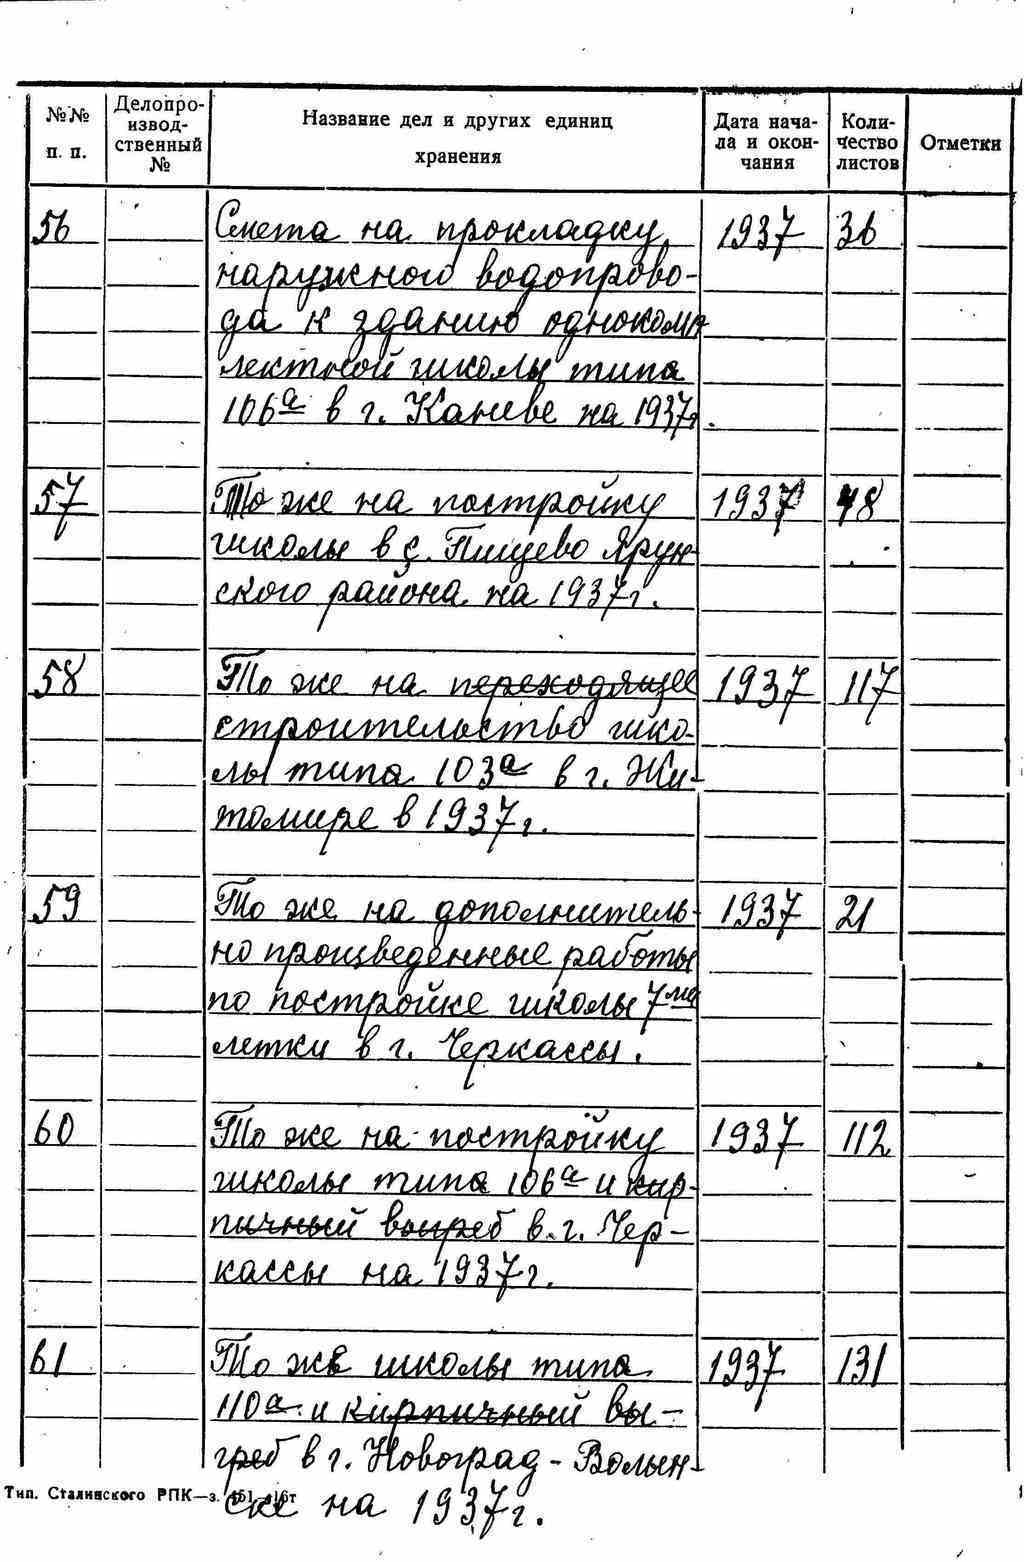 №№ п. п.
Делопро-
извод-
ственный
№
Название дел и других единиц
хранения
Дата нача-
ла и окон-
чания
Коли-
чество
листов
Отметки
56 Смета на прокладку 1937 36
наружного водопрово-
да к зданию однокомп
лектной школы типа
106а в г. Каневе на 1937г.
57 То же на постройку 1937 48
школы в с. Пищево Ярун-
ского района на 1937г.
58 То же на переходящее 1937 117
строительство шко-
лы типа 103а в г. Жи-
томире в 1937г.
59 То же на дополнитель- 1937 21
но произведенные работы
по постройке школы 7ми
летки в г. Черкассы.
60 То же на постройку 1937 112
школы типа 106а и кир-
пичный выгреб в г. Чер-
кассы на 1937г.
61 То же школы типа 1937 131
110а и кирпичный вы-
греб в г. Новоград-Волын-
ске на 1937г.
Тип. Сталинского РПК—з.